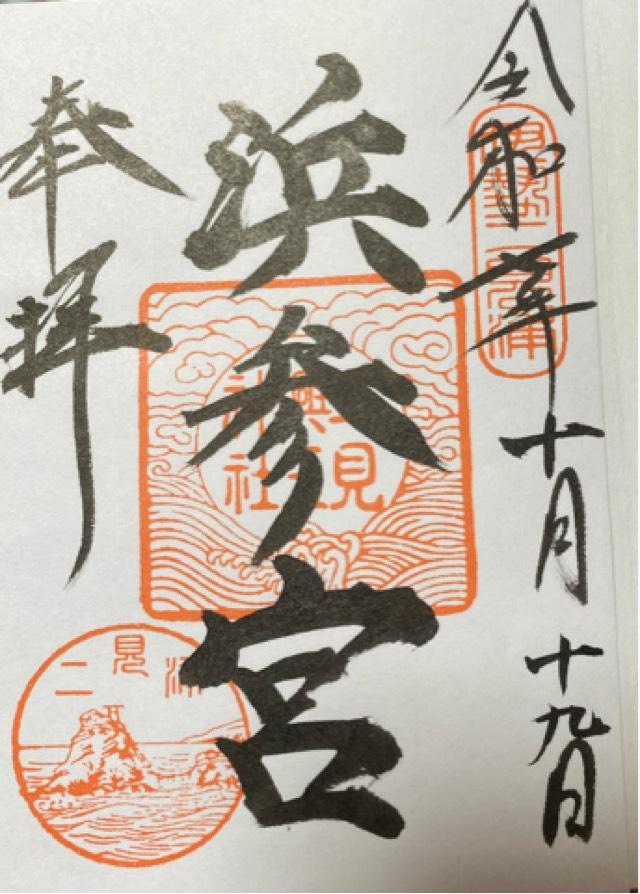 令和年十月十九日
伊勢二見浦
浜参宮
二見興玉神社
奉拝
二見浦